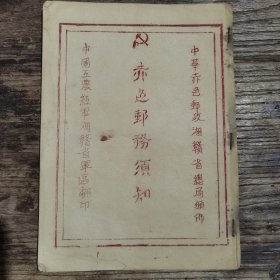 中華赤色郵政湘贛省總局翻印
赤色郵務須知
中國工農紅軍湘贛省軍區翻印